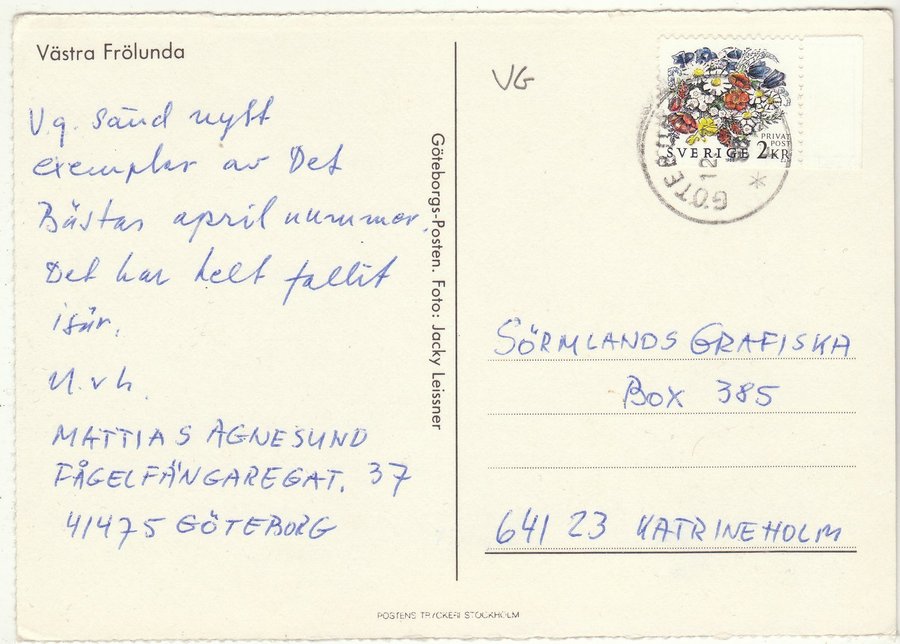 Västra Frölunda
V.g. sänd nytt
exemplar av Det
Bästas april nummer.
Det har helt fallit
isär.
M.v.h.
MATTIAS AGNESUND
FÅGELFÄNGAREGAT. 37
41475 GÖTEBORG
Göteborgs-Posten. Foto: Jacky Leissner
VG
PRIVAT
POST
SVERIGE 2KR
GÖTEBORG
12
SÖRMLANDS GRAFISKA
BOX 385
641 23 KATRINEHOLM
POSTENS TRYCKERI STOCKHOLM